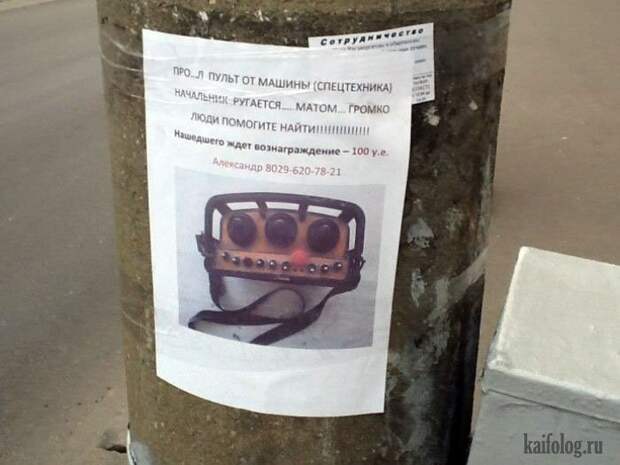 Сотрудничество
ПРО...Л ПУЛЬТ ОТ МАШИНЫ (СПЕЦТЕХНИКА)
НАЧАЛЬНИК РУГАЕТСЯ..... МАТОМ... ГРОМКО
ЛЮДИ ПОМОГИТЕ НАЙТИ!!!!!!!!!!!!!!!
Нашедшего ждет вознаграждение – 100 у.е.
Александр 8029-620-78-21
kaifolog.ru